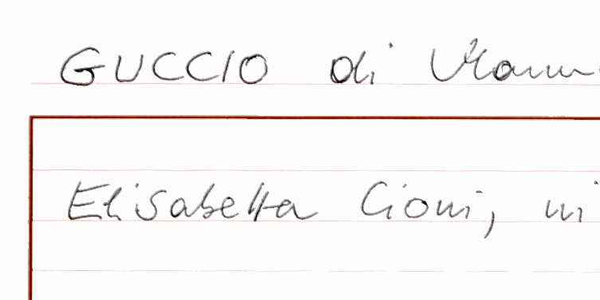 GUCCIO di
Elisabetta Cioni, in